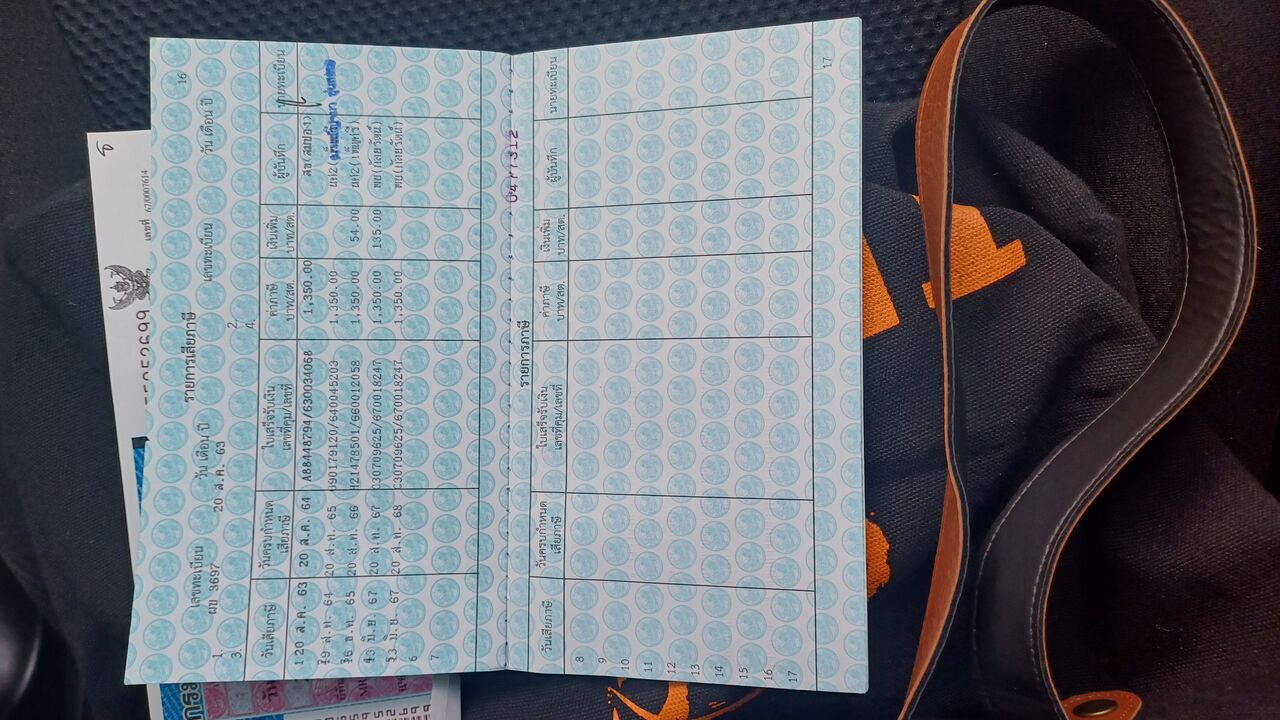 16
รายการเสียภาษี
เลขทะเบียน วัน เดือน ปี เลขทะเบียน วัน เดือน ปี
1. ผข 3697 20 ส.ค. 63 2.
3. 4.
วันเสียภาษี วันครบกำหนดเสียภาษี ใบเสร็จรับเงิน เลขที่คุม/เลขที่ ค่าภาษี บาท/สต. เงินเพิ่ม บาท/สต. ผู้บันทึก นายทะเบียน
1 20 ส.ค. 63 20 ส.ค. 64 A88448794/630034068 1,350.00
19 ส.ค. 64 20 ส.ค. 65 90179120/640045203 1,350.00
20 ส.ค. 66 H21478501/660012058 1,350.00 54.00
13 มิ.ย. 67 20 ส.ค. 67 C30709625/670018247 1,350.00 135.00
13 มิ.ย. 67 20 ส.ค. 68 C30709625/670018247 1,350.00
6
7
รายการภาษี
วันเสียภาษี วันครบกำหนดเสียภาษี ใบเสร็จรับเงิน เลขที่คุม/เลขที่ ค่าภาษี บาท/สต. เงินเพิ่ม บาท/สต. ผู้บันทึก นายทะเบียน
8
9
10
11
12
13
14
15
16
17
17
เลขที่ 67/0007614